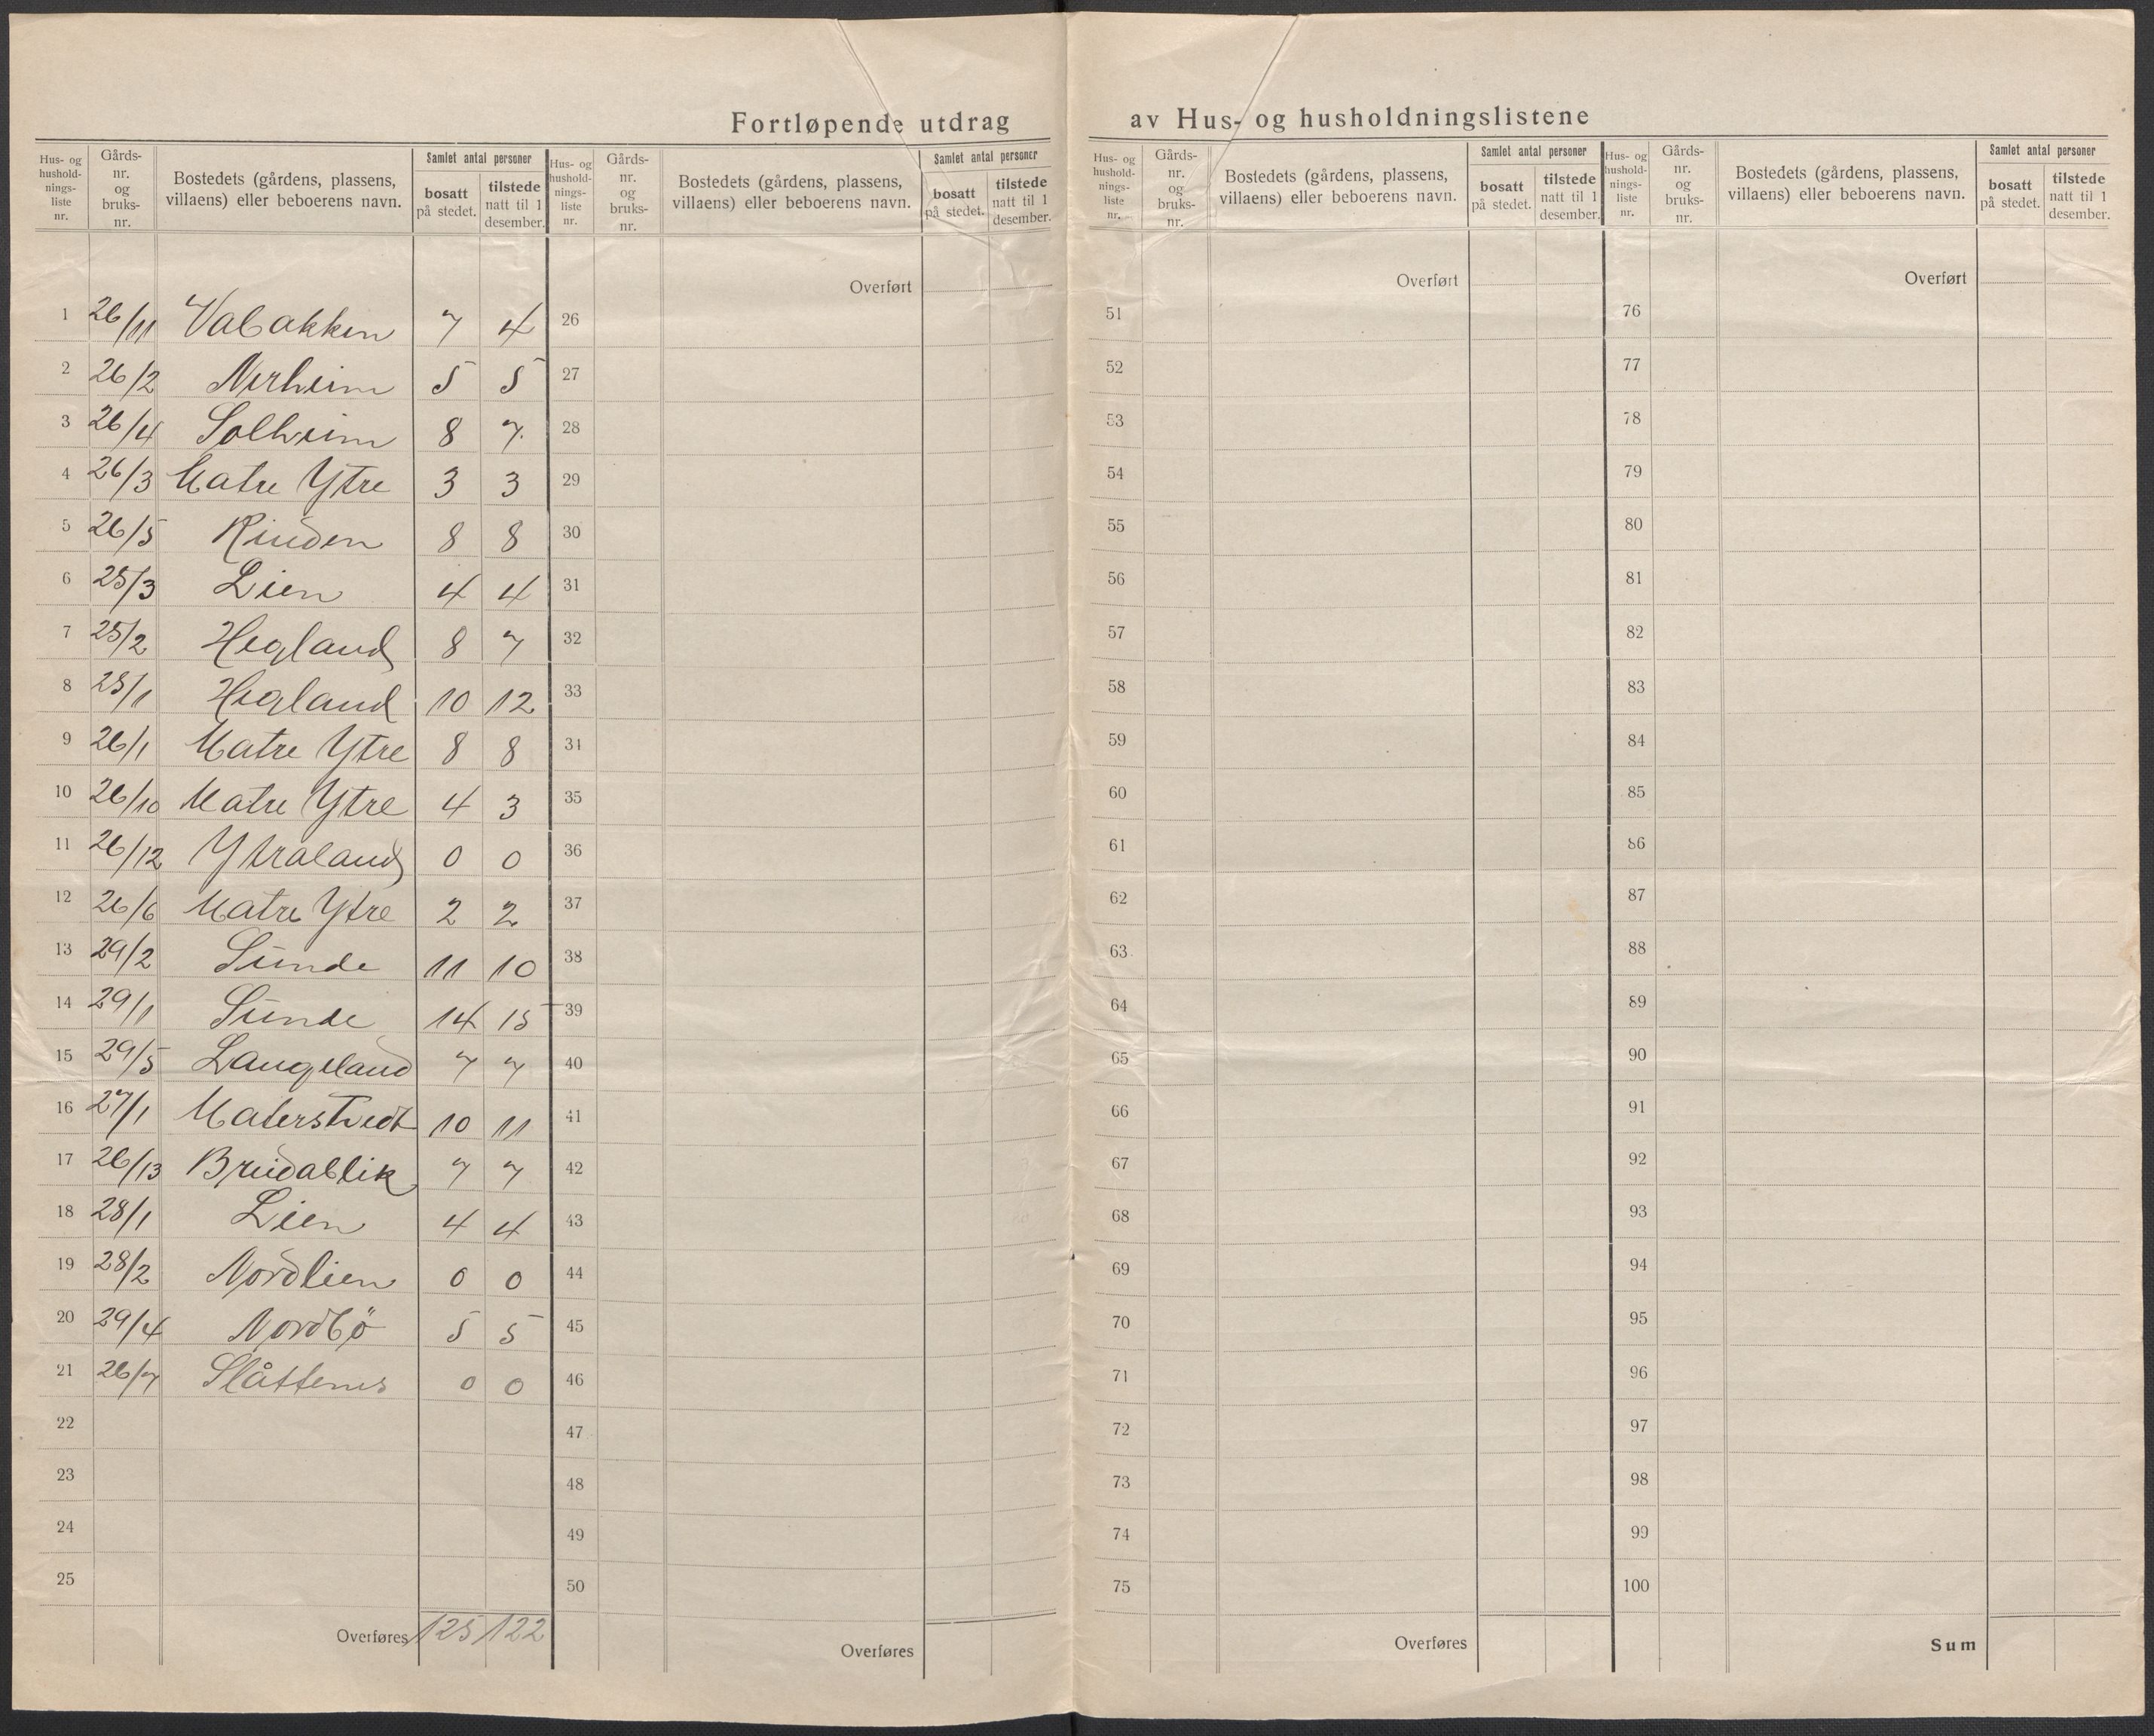 Fortløpende utdrag av Hus- og husholdningslistene
Hus- og hushold-nings-liste nr. Gårds-nr. og bruks-nr. Bostedets (gårdens, plassens, villaens) eller beboerens navn. Samlet antal personer bosatt på stedet. tilstede natt til 1 desember.
1 26/11 Vabakken 7 4
2 26/2 Nerheim 5 5
3 26/4 Solheim 8 7
4 26/3 Matre Ytre 3 3
5 26/5 Rinden 8 8
6 25/3 Lien 4 4
7 25/2 Hegland 8 7
8 25/1 Hegland 10 12
9 26/1 Matre Ytre 8 8
10 26/10 Matre Ytre 4 3
11 26/12 Ytraland 0 0
12 26/6 Matre Ytre 2 2
13 29/2 Sunde 11 10
14 29/1 Sunde 14 15
15 29/5 Langeland 7 7
16 27/1 Materstvedt 10 11
17 26/13 Breidablik 7 7
18 28/1 Lien 4 4
19 28/2 Nordlien 0 0
20 29/4 Nordbö 5 5
21 26/7 Slåttenes 0 0
22
23
24
25
Overføres 125 122
Hus- og hushold-nings-liste nr. Gårds-nr. og bruks-nr. Bostedets (gårdens, plassens, villaens) eller beboerens navn. Samlet antal personer bosatt på stedet. tilstede natt til 1 desember.
Overført
26
27
28
29
30
31
32
33
34
35
36
37
38
39
40
41
42
43
44
45
46
47
48
49
50
Overføres
Hus- og hushold-nings-liste nr. Gårds-nr. og bruks-nr. Bostedets (gårdens, plassens, villaens) eller beboerens navn. Samlet antal personer bosatt på stedet. tilstede natt til 1 desember.
Overført
51
52
53
54
55
56
57
58
59
60
61
62
63
64
65
66
67
68
69
70
71
72
73
74
75
Overføres
Hus- og hushold-nings-liste nr. Gårds-nr. og bruks-nr. Bostedets (gårdens, plassens, villaens) eller beboerens navn. Samlet antal personer bosatt på stedet. tilstede natt til 1 desember.
Overført
76
77
78
79
80
81
82
83
84
85
86
87
88
89
90
91
92
93
94
95
96
97
98
99
100
Sum